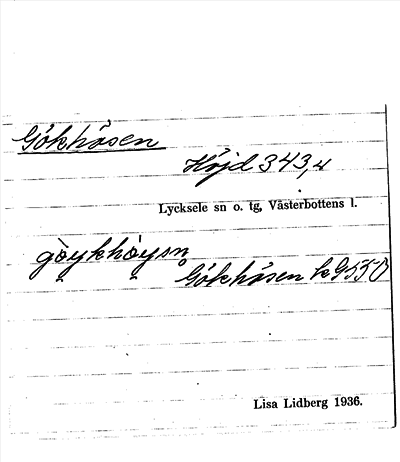 Gökhåsen
Höjd 343,4
Lycksele sn o. tg, Västerbottens l.
Gökhåsen k 9550
Lisa Lidberg 1936.